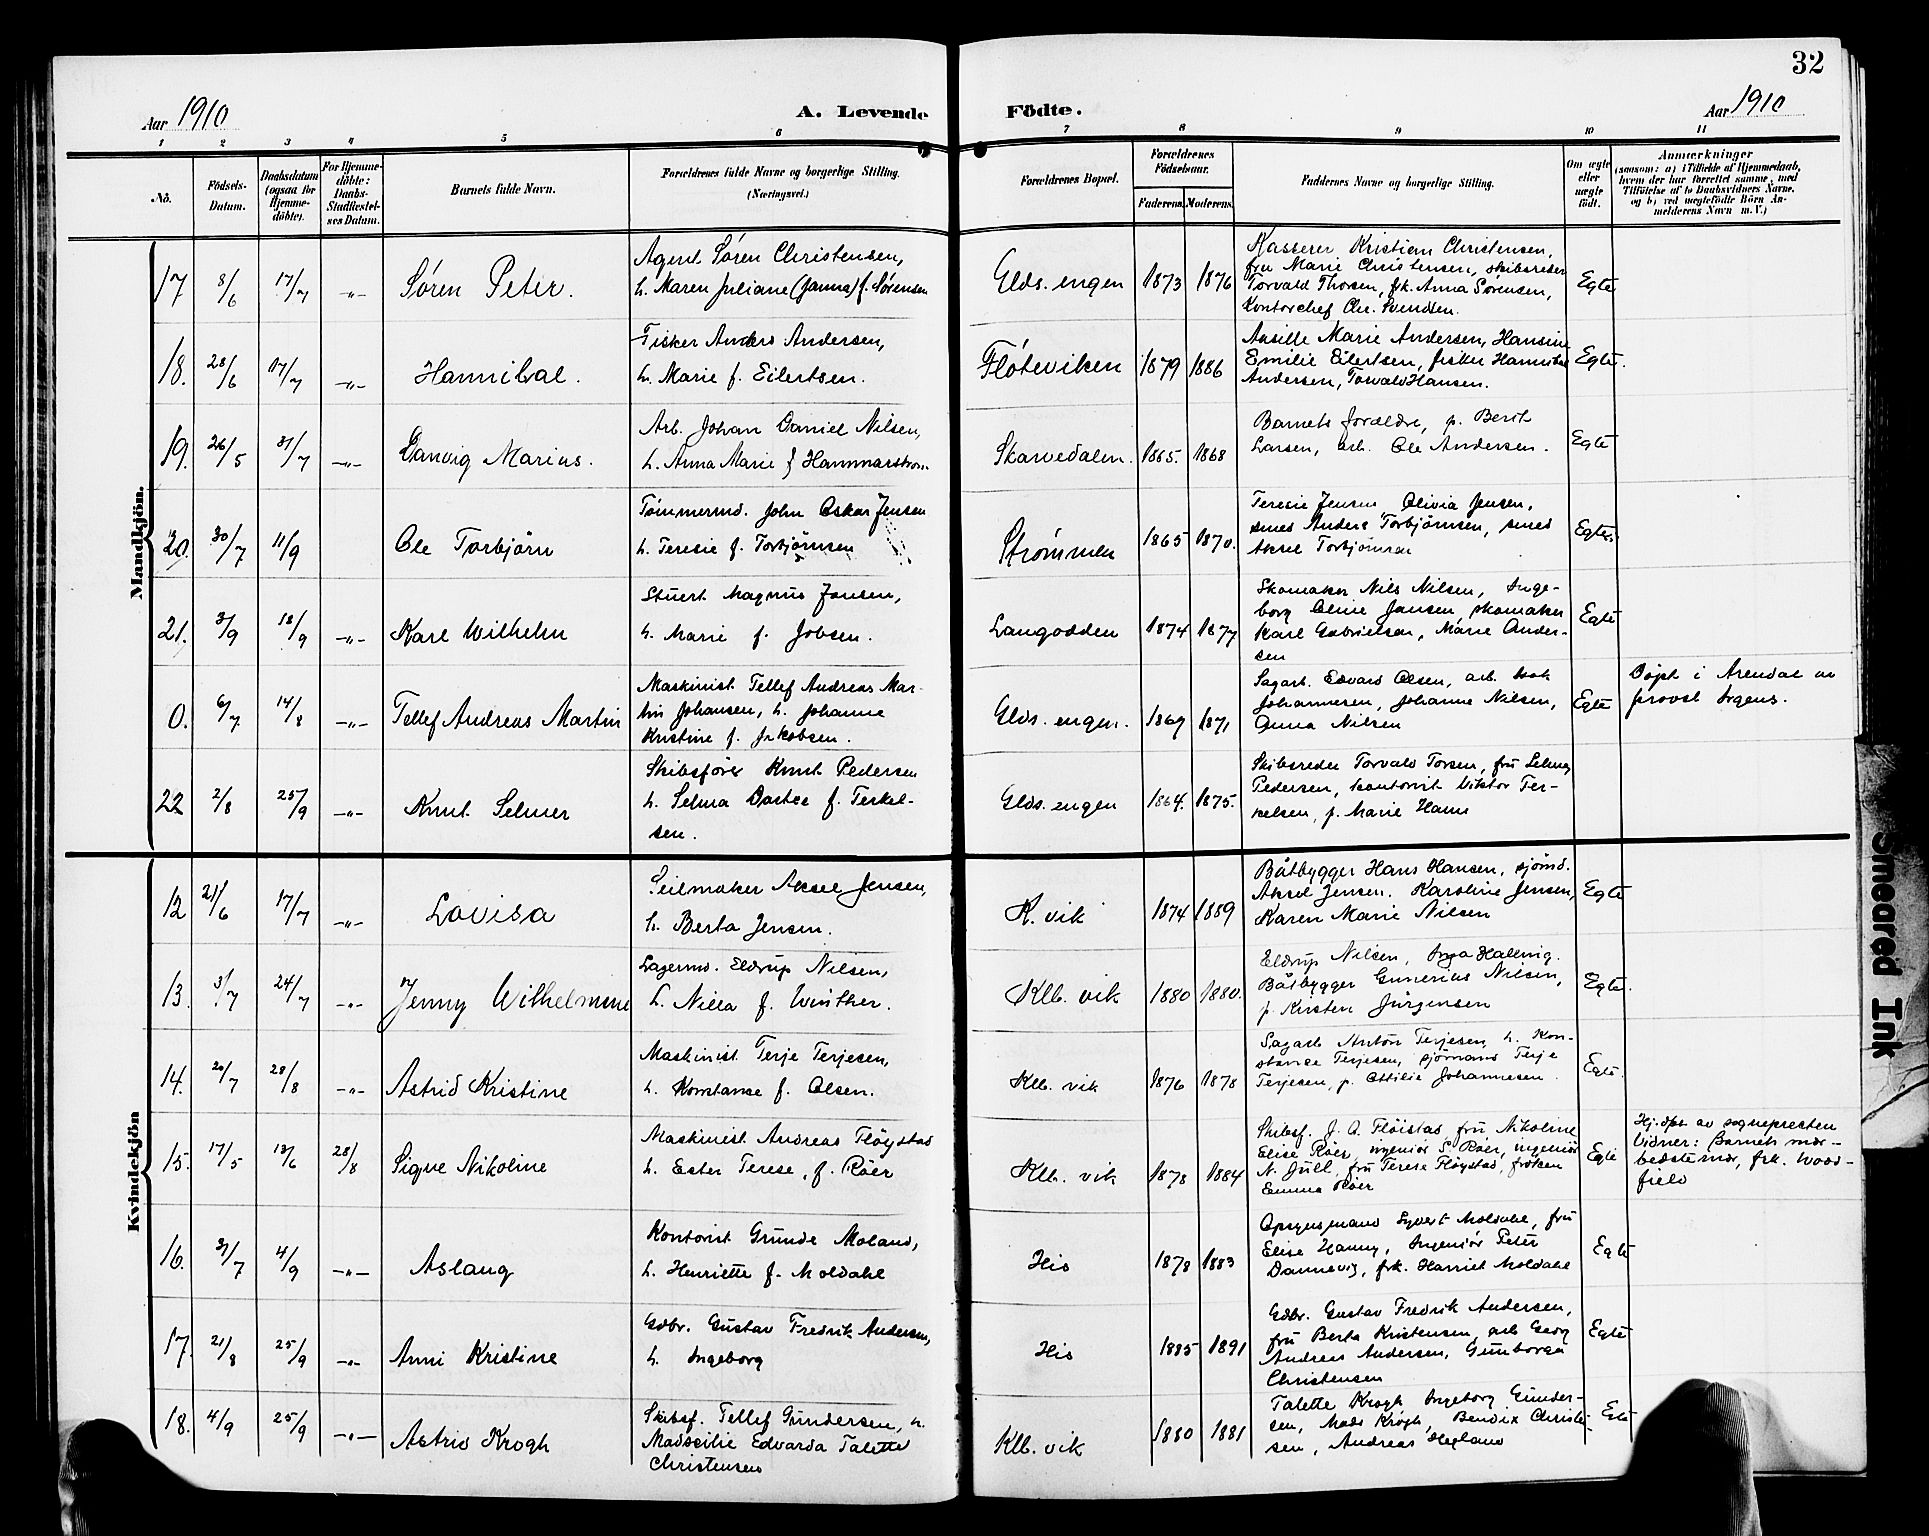 32
Aar 1910
A. Levende Födte.
Aar 1910
1 2 3 4 5 6 7 8 9 10 11
No.
Födsels-
Datum.
Daabsdatum
(ogsaa for
Hjemme-
döbte).
For Hjemme-
döbte:
Daabs-
Stadfæstel-
ses Datum.
Barnets fulde Navn.
Forældrenes fulde Navne og borgerlige Stilling.
(Næringsvei.)
Forældrenes Bopæl.
Forældrenes
Födselsaar.
Faderens. Moderens.
Faddernes Navne og borgerlige Stilling.
Om ægte
eller
uægte
födt.
Anmærkninger
(saasom: a) i Tilfælde af Hjemmedaab,
hvem der har forrettet samme, med
Tilföielse af to Daabsvidners Navne,
og b) ved uægtefödte Börn An-
melderens Navn m. V.)
Mandkjön.
17 8/6 17/7 -"- Søren Peter.
Agent Søren Christensen,
h. Maren Juliane (Janna) f. Sørensen
Elds. engen 1873 1876
Kasserer Kristian Christensen,
fru Marie Christensen, skibsreder
Torvald Thorsen, frk. Anna Sørensen,
Kontorchef Chr. Svendsen.
Egte
18. 28/6 17/7 -"- Hannibal.
Fisker Anders Andersen,
h. Marie f. Eilertsen.
Fløteviken 1879 1886
Marie Andersen,
Emilie Eilertsen, fisker
Andersen, Torvald Hansen.
Egte.
19. 26/5 31/7 -"- Danvig Marius.
Arb. Johan Daniel Nilsen,
h. Anna Marie f Hammarstrøm
Skarvedalen. 1865. 1868
Barnets forældre, p. Berit
Larsen, arb. Ole Andersen.
Egte
20. 30/7 11/9 Ole Torbjørn
Tømmermd. John Oskar Jensen
h. Teresie f. Torbjørnsen
Strømmen 1865 1870.
Teresie Jensen, Olivia Jensen,
smed Anders Torbjørnsen, smed
Aksel Torbjørnsen
Egte.
21. 3/9 18/9 -"- Karl Wilhelm
Stuert Magnus Jansen,
h. Marie f. Jobsen.
Langodden 1874 1877
Skomaker Nils Nilsen, Inge-
borg Oline Jansen, skomaker
Karl Gabrielsen, Marie Ander-
sen
Egte
0. 6/7 14/8 -"- Tellef Andreas Martin
Maskinist Tellef Andreas Mar-
tin Johansen, h. Johanne
Kristine f. Jakobsen.
Elds. engen. 1869 1871
Sagarb. Edvard Olsen, arb. Isak
Johannesen, Johanne Nilsen,
Anna Nilsen
Egte
Døpt i Arendal av
provst Irgens.
22 2/8 25/9 -"- Knut Selmer
Skibsfører Knut Pedersen
h. Selma Dortea f. Terkel-
sen.
Elds. engen 1864. 1875.
Skibsreder Torvald Torsen, fru Selma
Pedersen, kontorist Viktor Ter-
kelsen, p. Marie Hans
Kvindekjön
12 21/6 17/7 -"- Lovisa
Seilmaker Aksel Jensen,
h. Berta Jensen.
K. vik 1874 1889
Båtbygger Hans Hansen, sjømd.
Aksel Jensen. Karoline Jensen,
Karen Marie Nilsen
Egte
13. 3/7 24/7 -"- Jenny Wilhelmine
Lagermd. Eldrup Nilsen,
h. Nilla f. Winther.
Klb. vik 1880 1880.
Eldrup Nilsen, Inga Halling.
Båtbygger Gunerius Nilsen,
p. Kristen Jürgensen
Egte.
14. 20/7 28/8 -"- Astrid Kristine
Maskinist Terje Terjesen,
h. Konstanse f. Olsen.
Klb. vik 1876 1878
Sagarb. Anton Terjesen, h. Kon-
stanse Terjesen, sjømand Terje
Terjesen, p. Ottilie Johannesen.
Egte.
15. 17/5 13/6 28/8 Signe Nikoline
Maskinist Andreas Fløystad
h. Ester Terese, f. Röer
Klb. vik 1878 1884
Skibsf. J. A. Fløistad fru Nikoline
Elise Röer, ingeniør S. Röer, ingeniør
N. Jull, fru Terese Fløystad, frøken
Emma Röer
Egte
Hj.dpt. av sognepresten
Vidner: Barnets mor-
bedstemor, frk. Wood-
field
16. 31/7 4/9 -"- Aslaug
Kontorist Gunde Moland,
h. Henriette f. Moldahl
His 1878 1883
Opsynsmand Syvert Moldahl, fru
Elise Hanny, Ingeniør Peter
Dannevig, frk. Harriet Moldahl
Egte
17. 21/8 25/9 -"- Anni Kristine
Gdbr. Gustav Fredrik Andersen,
h. Ingeborg
His 1885 1891
Gdbr. Gustav Fredrik Andersen,
fru Berta Kristensen, arb Georg
Andreas Andersen, Gunborga
Christensen
Egte
18. 4/9 25/9 -"- Astrid Krogh
Skibsf. Tellef Gundersen, h.
Madscilie Edvarda Talette
Christensen
Klb. vik 1880 1881
Talette Krogh Ingeborg Gunder-
sen, Mads Krogh, Bendix Christen-
sen, Andreas Hegland
Egte
Smeared Ink